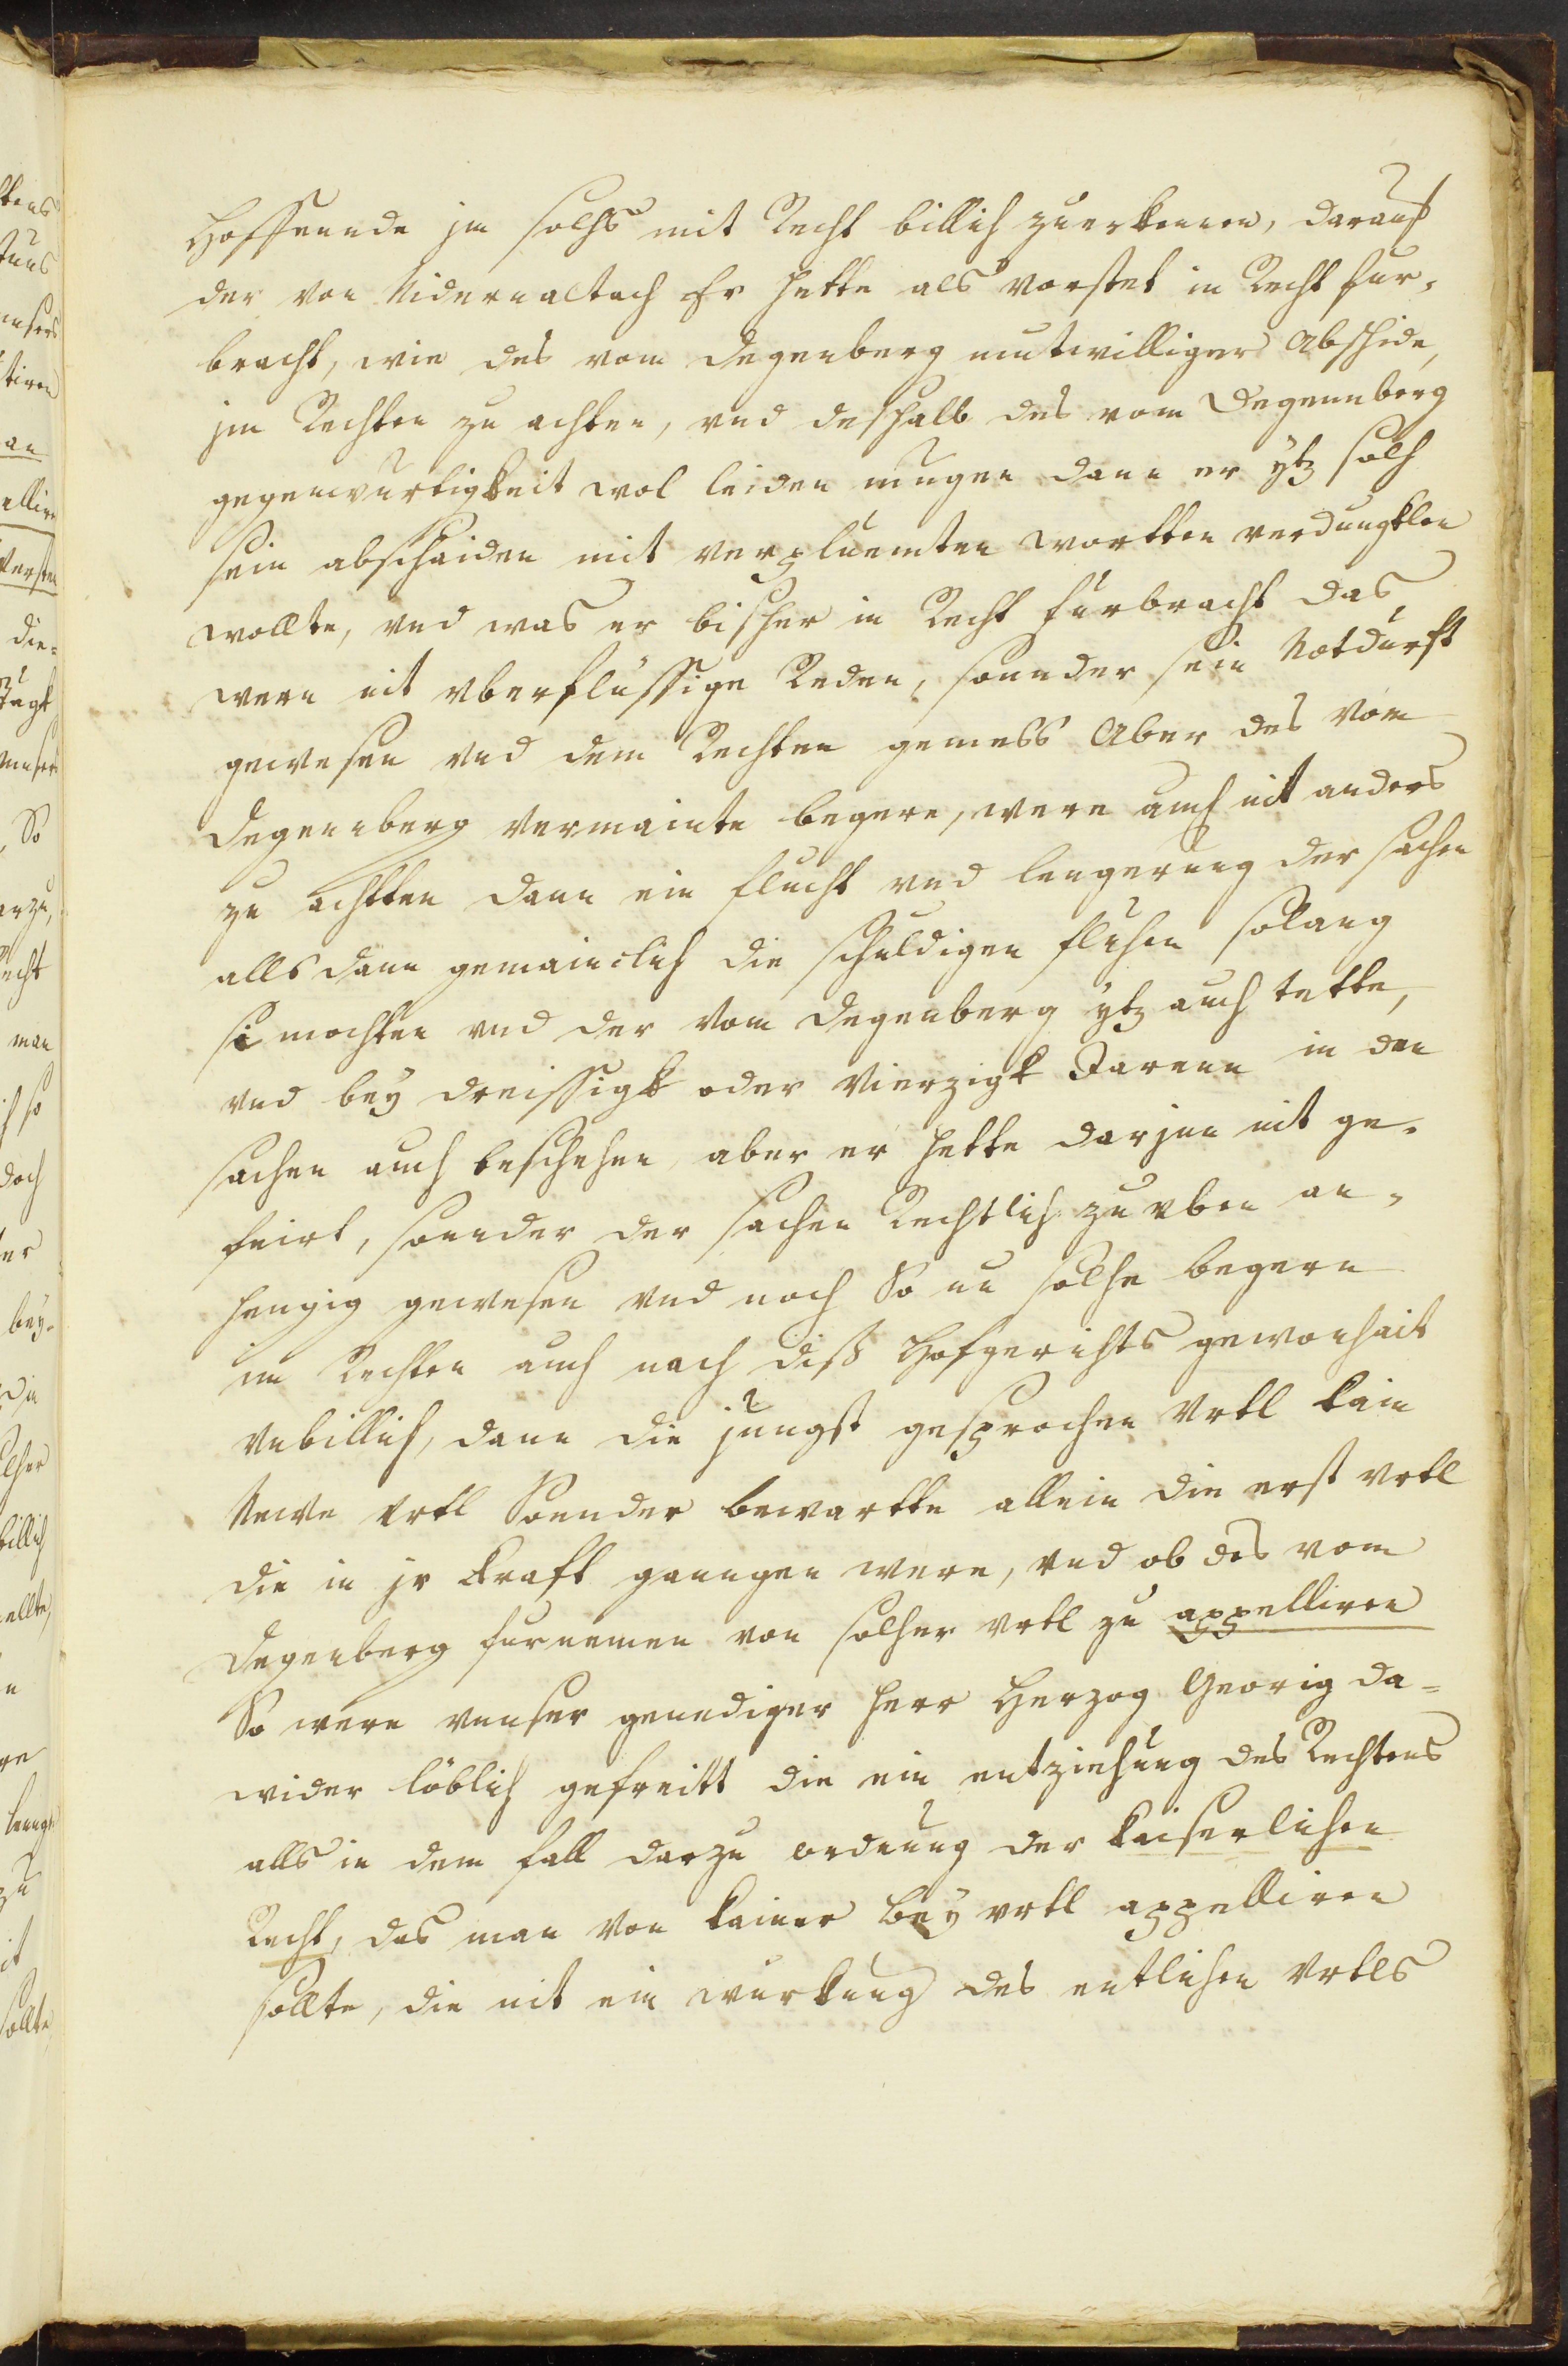 Hoffennde jm solhs mit Recht billich zuerkennen, darauf
der von Nidernaltach Er hette als vorstet in Recht fur,
bracht, wie des vom Degenberg mutwilliger Abschide,
jm Rechten zu achten, vnd deshalb des vom Degennberg
gegenwurtigkeit wol leiden mugen dann er ytz solh
sein abschaiden mit verpluemten wortten verdungklen
wollte, vnd was er bisher in Recht furbracht das
wern nit vberflüssige Reden, sonnder sein Notdurft
gewesen vnd dem Rechten gemess Aber des vom
Degennberg vermainte begere, were auch nit anders
zu achtten dann ein flucht vnd lengerung der sachen
alls dann gemainclich die schuldigen fluhen solang
si mochten vnd der vom Degenberg ytz auch tette,
vnd bey dreissigk oder vierzigk Jarenn in den
sachen auch beschehen, aber er hette darjnn nit ge,
feirt, sonnder der sachen Rechtlich zu vben an,
hengig gewesen vnd noch So nu solhe begern
im Rechten auch nach diß Hofgerichts gewonhait
vnbillich, dann die jungst gesprochen Vrtl kain
Newe vrtl Sonnder bewartte allein die erst vrtl
die in jr kraft ganngen were, vnd ob des vom
Degenberg furnemen von solher vrtl zu appelliren
So were vnnser genediger herr Herzog Georig da=
wider löblich gefreitt die ein entziehung des Rechtens
alls in dem fall darzu ordnung der kaiserlichen
Recht, das man von kainer bey vrtl appelliren
sollte, die nit ein wurkung des entlichen Vrtls